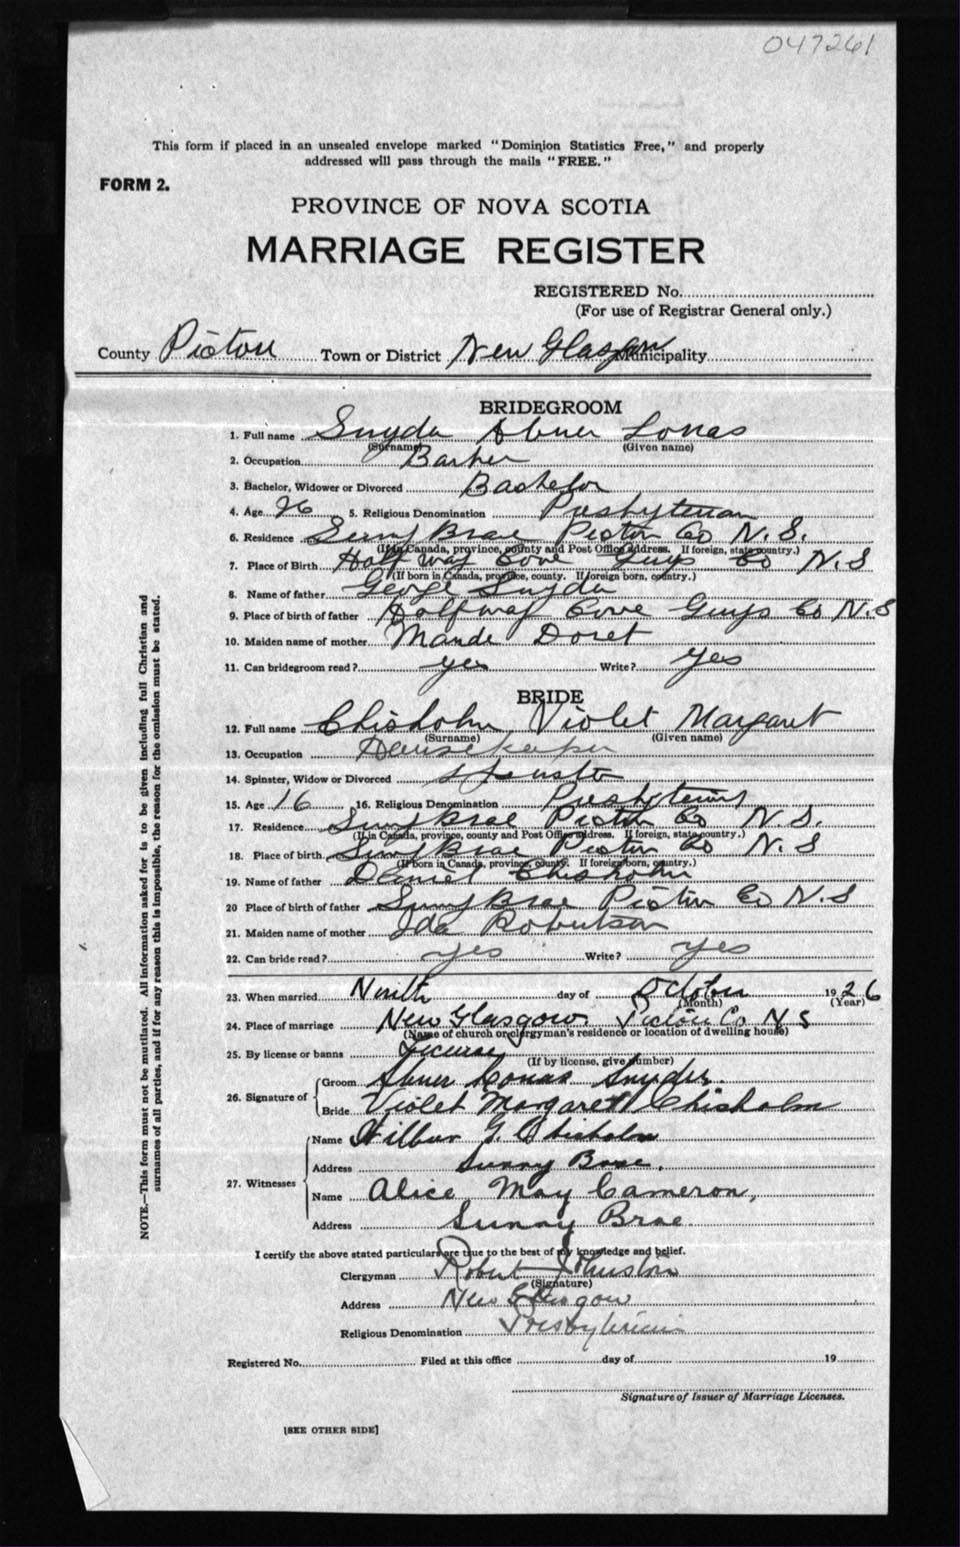 047261
This form if placed in an unsealed envelope marked "Dominion Statistics Free," and properly
addressed will pass through the mails "FREE."
FORM 2.
PROVINCE OF NOVA SCOTIA
MARRIAGE REGISTER
REGISTERED No.
(For use of Registrar General only.)
County Pictou Town or District New Glasgow Municipality
BRIDEGROOM
1. Full name Snyder Abner Jonas
(Surname) (Given name)
2. Occupation Barber
3. Bachelor, Widower or Divorced Bachelor
4. Age 26 5. Religious Denomination Presbyterian
6. Residence Sunny Brae Pictou Co N.S.
(If in Canada, province, county and Post Office address. If foreign, state country.)
7. Place of Birth Half Way Cove Guys Co N.S
(If born in Canada, province, county. If foreign born, country.)
8. Name of father George Snyder
9. Place of birth of father Halfway Cove Guys Co N.S
10. Maiden name of mother Maude Doret
11. Can bridegroom read? yes Write? yes
BRIDE
12. Full name Chisholm Violet Margaret
(Surname) (Given name)
13. Occupation Housekeeper
14. Spinster, Widow or Divorced Spinster
15. Age 16 16. Religious Denomination Presbyterian
17. Residence Sunny Brae Pictou Co N.S.
(If in Canada, province, county and Post Office address. If foreign, state country.)
18. Place of birth Sunny Brae Pictou Co N.S
(If born in Canada, province, county. If foreign born, country.)
19. Name of father Daniel Chisholm
20 Place of birth of father Sunny Brae Pictou Co N.S
21. Maiden name of mother Ida Robertson
22. Can bride read? yes Write? yes
23. When married Ninth day of October 1926
(Month) (Year)
24. Place of marriage New Glasgow Pictou Co N S
(Name of church or clergyman's residence or location of dwelling house)
25. By license or banns License
(If by license, give number)
26. Signature of Groom Abner Jonas Snyder.
Bride Violet Margarett Chisholm
27. Witnesses Name Wilbur G. Chisholm
Address Sunny Brae.
Name Alice May Cameron,
Address Sunny Brae.
I certify the above stated particulars are true to the best of my knowledge and belief.
Clergyman Robert Johnston
(Signature)
Address New Glasgow
Religious Denomination Presbyterian
Registered No. Filed at this office day of 19
Signature of Issuer of Marriage Licenses.
[SEE OTHER SIDE]
NOTE.—This form must not be mutilated. All information asked for is to be given including full Christian and
surnames of all parties, and if for any reason this is impossible, the reason for the omission must be stated.